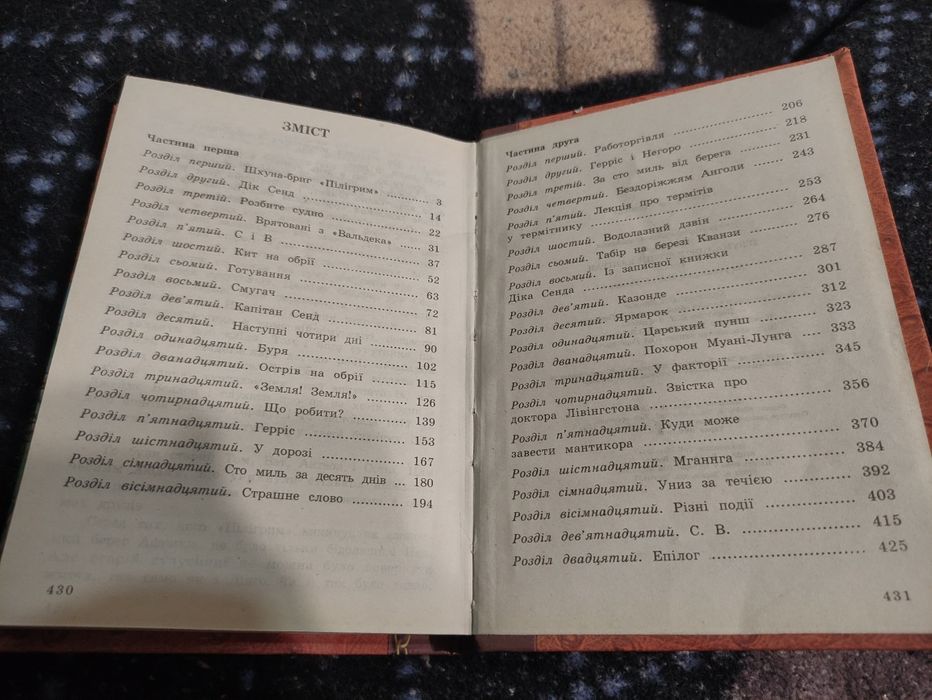 ЗМІСТ
Частина перша
Розділ перший. Шхуна-бриг «Пілігрим» 3
Розділ другий. Дік Сенд 14
Розділ третій. Розбите судно 22
Розділ четвертий. Врятовані з «Вальдека» 31
Розділ п'ятий. С і В 37
Розділ шостий. Кит на обрії 52
Розділ сьомий. Готування 63
Розділ восьмий. Смугач 72
Розділ дев'ятий. Капітан Сенд 81
Розділ десятий. Наступні чотири дні 90
Розділ одинадцятий. Буря 102
Розділ дванадцятий. Острів на обрії 115
Розділ тринадцятий. «Земля! Земля!» 126
Розділ чотирнадцятий. Що робити? 139
Розділ п'ятнадцятий. Герріс 153
Розділ шістнадцятий. У дорозі 167
Розділ сімнадцятий. Сто миль за десять днів ... 180
Розділ вісімнадцятий. Страшне слово 194
430
Частина друга
Розділ перший. Работоргівля 206
Розділ другий. Герріс і Негоро 218
Розділ третій. За сто миль від берега 231
Розділ четвертий. Бездоріжжям Анголи 243
Розділ п'ятий. Лекція про термітів
у термітнику 253
Розділ шостий. Водолазний дзвін 264
Розділ сьомий. Табір на березі Кванзи 276
Розділ восьмий. Із записної книжки
Діка Сенда 287
Розділ дев'ятий. Казонде 301
Розділ десятий. Ярмарок 312
Розділ одинадцятий. Царський пунш 323
Розділ дванадцятий. Похорон Муані-Лунга 333
Розділ тринадцятий. У факторії 345
Розділ чотирнадцятий. Звістка про
доктора Лівінгстона 356
Розділ п'ятнадцятий. Куди може
завести мантикора 370
Розділ шістнадцятий. Мганнга 384
Розділ сімнадцятий. Униз за течією 392
Розділ вісімнадцятий. Різні події 403
Розділ дев'ятнадцятий. С. В. 415
Розділ двадцятий. Епілог 425
431